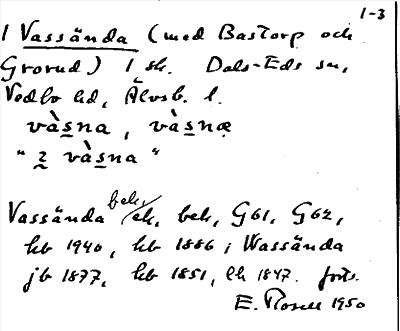 1-3
1 Vassända (med Bastorp och
Grorud) 1 sk. Dals-Eds sn,
Vedbo hd, Älvsb. l.
vàsna, vàsnæ
"2 vàsna"
beh.
Vassända ek, beh, G61, G62,
kb 1940, kb 1886; Wassända
jb 1877, kb 1851, lh 1847. forts.
E. 1950